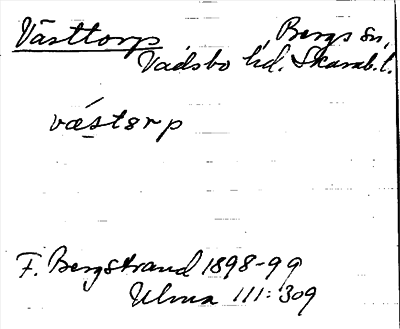 Västtorp Bergs sn,
Vadsbo hd. Skarab. l.
vǽstɘrp
F. Bergstrand 1898-99
Ulma 111:309